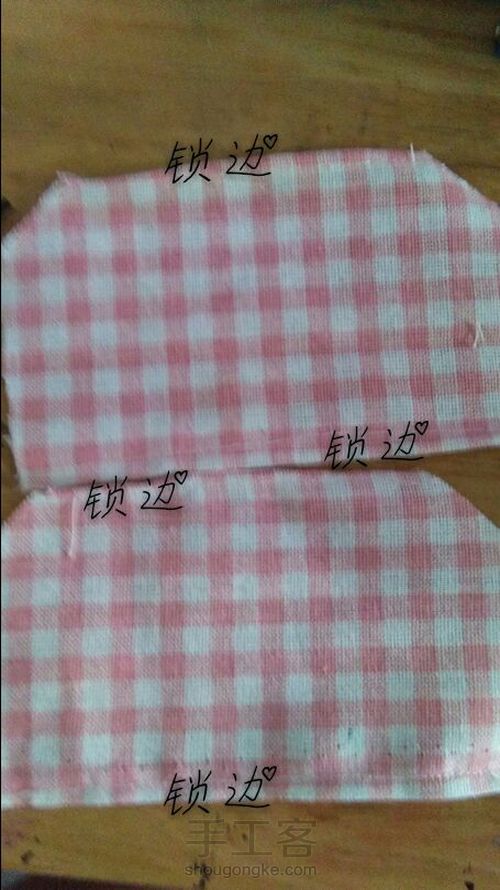 锁边♡
锁边♡
锁边♡
锁边♡
手工客
shougongke.com